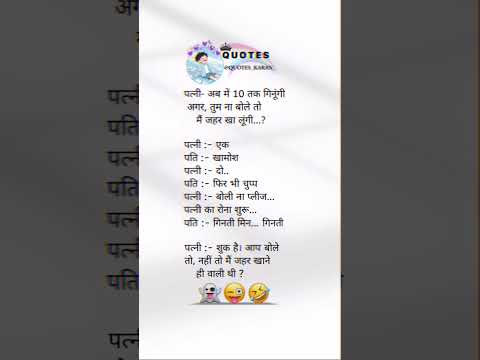 QUOTES
@QUOTES_KARAN_
पत्नी- अब में 10 तक गिनूंगी
अगर, तुम ना बोले तो
मैं जहर खा लूंगी...?
पत्नी :- एक
पति :- खामोश
पत्नी :- दो..
पति :- फिर भी चुप्प
पत्नी :- बोली ना प्लीज...
पत्नी का रोना शुरू...
पति :- गिनती मिन... गिनती
पत्नी :- शुक है। आप बोले
तो, नहीं तो मैं जहर खाने
ही वाली थी ?